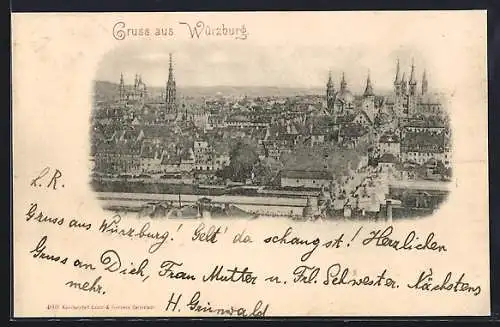 Gruss aus Würzburg.
L. R.
Gruss aus Würzburg! Gelt' da schaugst! Herzlichen
Gruss an Dich, Frau Mutter u. Frl. Schwester. Nächstens
mehr. H. Grünwald